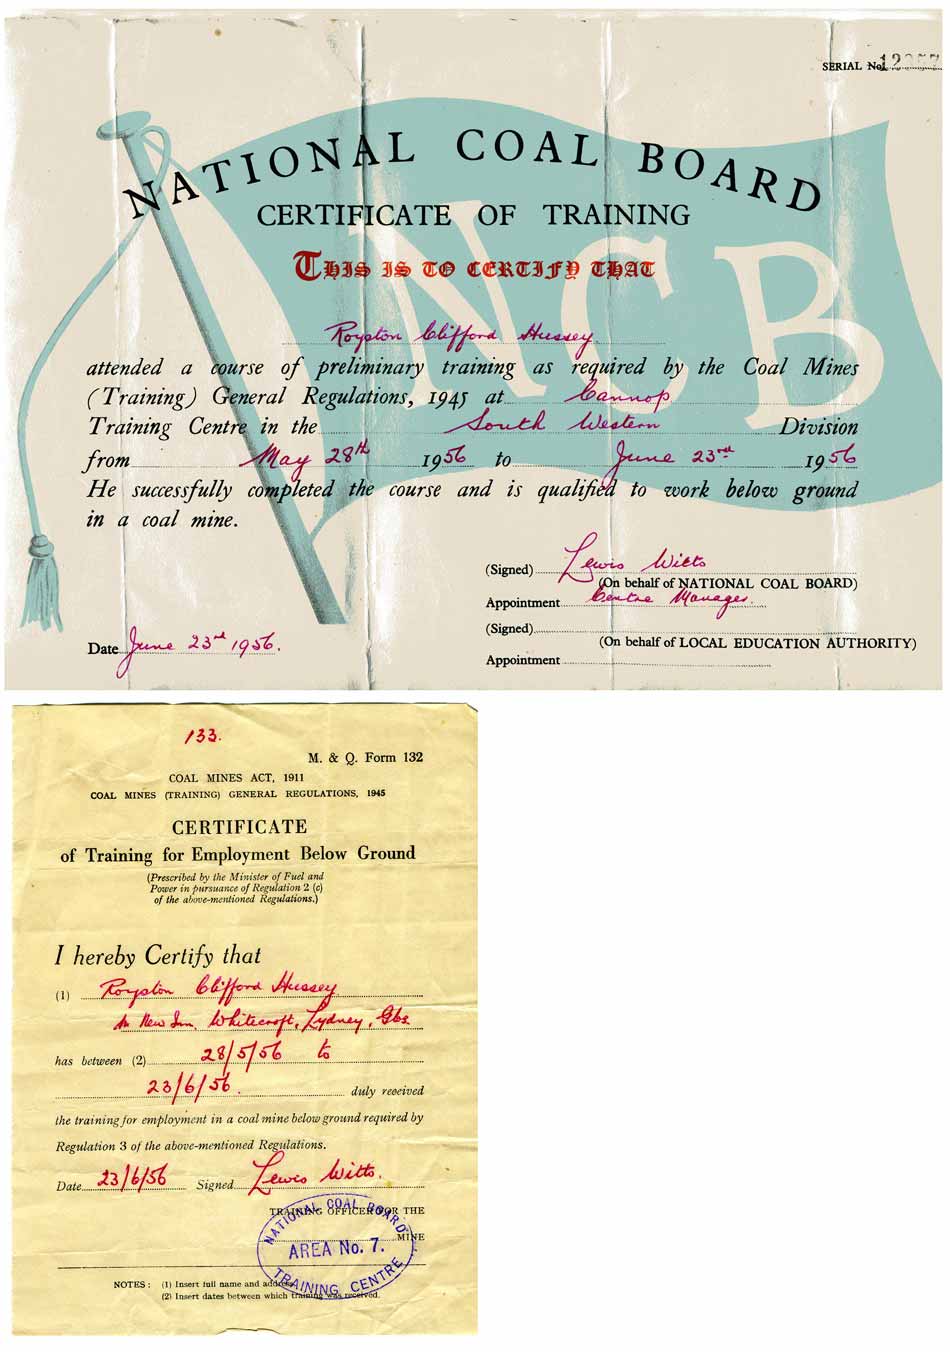 SERIAL No.
NATIONAL COAL BOARD
CERTIFICATE OF TRAINING
THIS IS TO CERTIFY THAT
NCB
Royston Clifford Hussey.
attended a course of preliminary training as required by the Coal Mines
(Training) General Regulations, 1945 at Cannop
Training Centre in the South Western Division
from May 28th 1956 to June 23rd 1956
He successfully completed the course and is qualified to work below ground
in a coal mine.
(Signed) Lewis Witts
(On behalf of NATIONAL COAL BOARD)
Appointment Centre Manager.
(Signed)
(On behalf of LOCAL EDUCATION AUTHORITY)
Date June 23rd 1956.
Appointment
133.
M. & Q. Form 132
COAL MINES ACT, 1911
COAL MINES (TRAINING) GENERAL REGULATIONS, 1945
CERTIFICATE
of Training for Employment Below Ground
(Prescribed by the Minister of Fuel and
Power in pursuance of Regulation 2 (c)
of the above-mentioned Regulations.)
I hereby Certify that
(1) Royston Clifford Hussey
New Inn, Whitecroft, Lydney, Glos.
has between (2) 28/5/56 to
23/6/56. duly received
the training for employment in a coal mine below ground required by
Regulation 3 of the above-mentioned Regulations.
Date 23/6/56 Signed Lewis Witts.
TRAINING OFFICER FOR THE
MINE
NATIONAL COAL BOARD
AREA No. 7.
TRAINING CENTRE
NOTES : (1) Insert full name and address.
(2) Insert dates between which training was received.